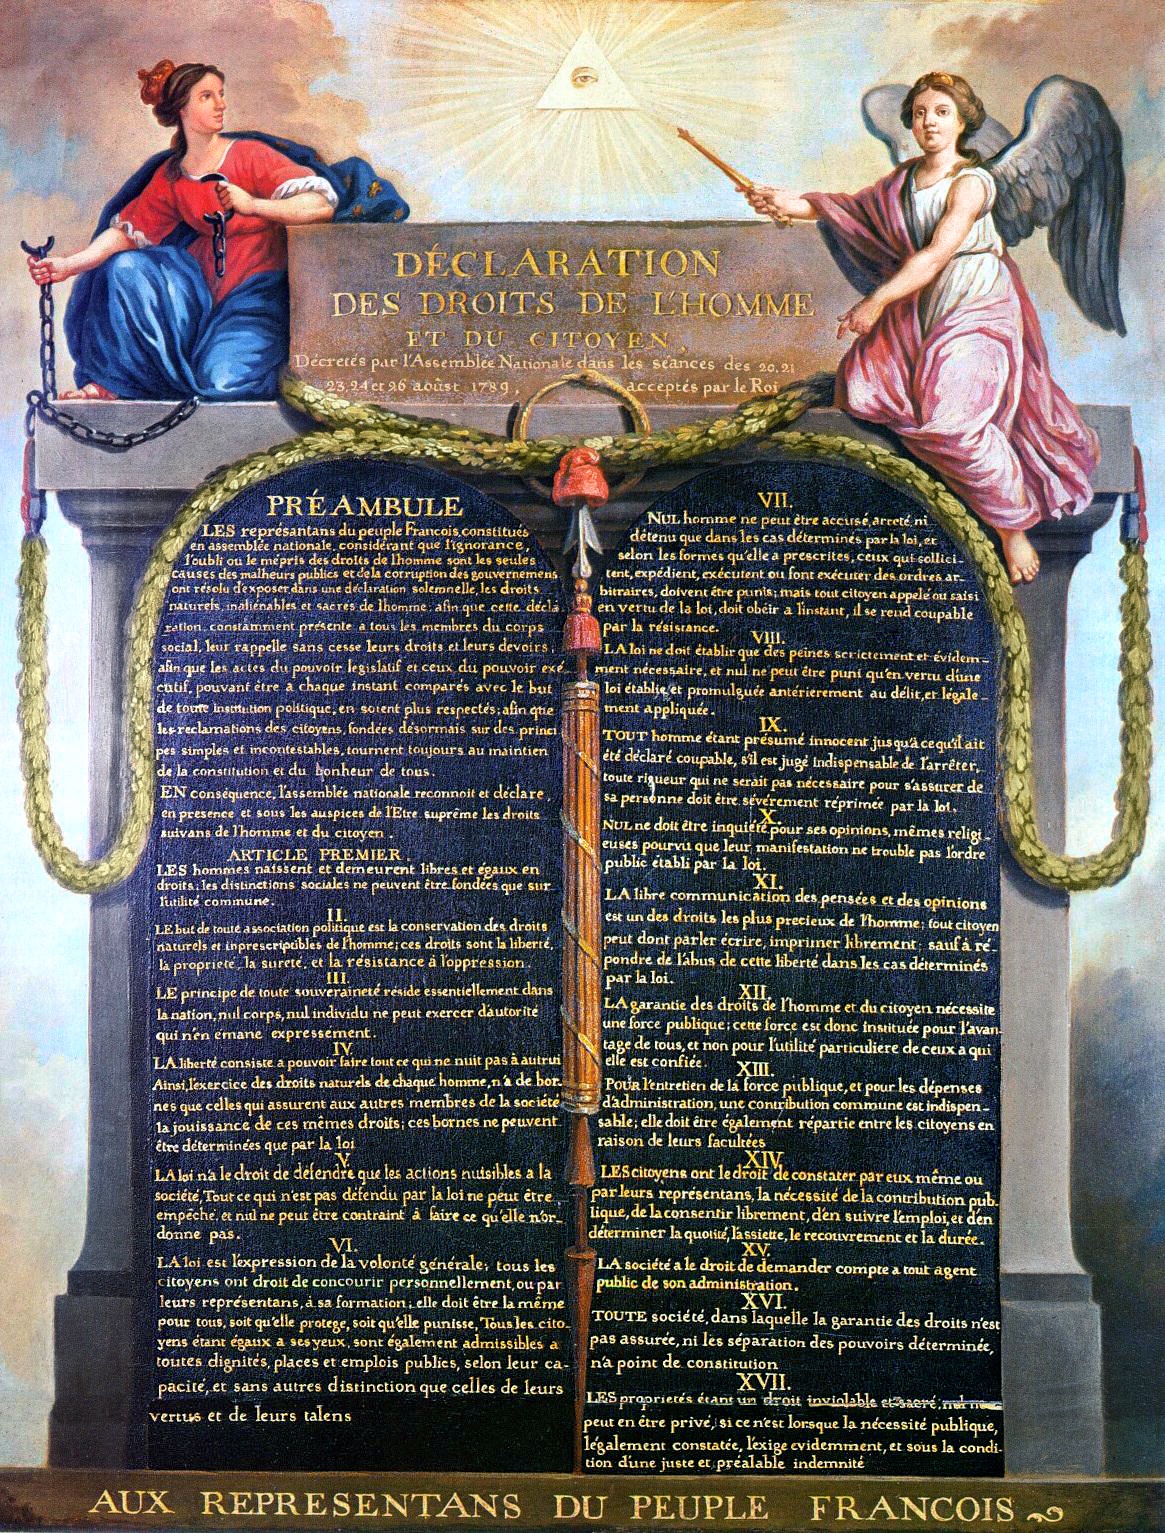 DÉCLARATION
DES DROITS DE L'HOMME
ET DU CITOYEN,
Décretés par l'Assemblée Nationale dans les séances des 20, 21
23, 24 et 26 août 1789, acceptés par le Roi
PRÉAMBULE
LES représantans du peuple François, constitués
en assemblée nationale, considérant que l'ignorance,
l'oubli ou le mépris des droits de l'homme sont les seules
causes des malheurs publics et de la corruption des gouvernemens
ont résolu d'exposer dans une déclaration solemnelle, les droits
naturels, inaliénables et sacrés de l'homme; afin que cette décla
ration, constamment présente a tous les membres du corps
social, leur rappelle sans cesse leurs droits et leurs devoirs;
afin que les actes du pouvoir législatif et ceux du pouvoir exé
cutif, pouvant être a chaque instant comparés avec le but
de toute institution politique, en soient plus respectés; afin que
les reclamations des citoyens, fondées désormais sur des princi
pes simples et incontestables, tournent toujours au maintien
de la constitution et du bonheur de tous.
EN conséquence, l'assemblée nationale reconnoit et déclare,
en presence et sous les auspices de l'Etre suprême les droits
suivans de l'homme et du citoyen.
ARTICLE PREMIER.
LES hommes naissent et demeurent libres et égaux en
droits; les distinctions sociales ne peuvent être fondées que sur
l'utilité commune.
II.
LE but de toute association politique est la conservation des droits
naturels et inprescriptibles de l'homme; ces droits sont la liberté,
la propriété, la sureté, et la résistance à l'oppression.
III.
LE principe de toute souveraineté réside essentiellement dans
la nation, nul corps, nul individu ne peut exercer d'autorité
qui n'en émane expressement.
IV.
LA liberté consiste a pouvoir faire tout ce qui ne nuit pas à autrui
Ainsi, l'exercice des droits naturels de chaque homme, n'a de bor-
nes que celles qui assurent aux autres membres de la société
la jouissance de ces mêmes droits; ces bornes ne peuvent
être déterminées que par la loi
V.
LA loi n'a le droit de défendre que les actions nuisibles a la
société, Tout ce qui n'est pas défendu par la loi ne peut être
empêché, et nul ne peut être contraint à faire ce qu'elle n'or-
donne pas.
VI.
LA loi est l'expression de la volonté générale; tous les
citoyens ont droit de concourir personnellement, ou par
leurs représentans, à sa formation; elle doit être la même
pour tous, soit qu'elle protege, soit qu'elle punisse, Tous les cito-
yens étant égaux a ses yeux, sont également admissibles a
toutes dignités, places et emplois publics, selon leur ca-
pacité, et sans autres distinction que celles de leurs
vertus et de leurs talens
VII.
NUL homme ne peut être accusé, arreté, ni
détenu que dans les cas déterminés par la loi, et
selon les formes qu'elle a prescrites, ceux qui sollici-
tent, expédient, exécutent ou font exécuter des ordres ar-
bitraires, doivent être punis; mais tout citoyen appelé ou saisi
en vertu de la loi, doit obéir a l'instant, il se rend coupable
par la résistance.
VIII.
LA loi ne doit établir que des peines strictement et évidem-
ment nécessaire, et nul ne peut être puni qu'en vertu d'une
loi établie et promulguée antérierement au délit, et légale-
ment appliquée.
IX.
TOUT homme étant présumé innocent jusqu'à ce qu'il ait
été déclaré coupable, s'il est jugé indispensable de l'arrêter,
toute rigueur qui ne serait pas nécessaire pour s'assurer de
sa personne doit être sévèrement réprimée par la loi.
X.
NUL ne doit être inquiété pour ses opinions, mêmes religi-
euses pourvu que leur manifestation ne trouble pas l'ordre
public établi par la loi.
XI.
LA libre communication des pensées et des opinions
est un des droits les plus precieux de l'homme; tout citoyen
peut dont parler écrire, imprimer librement; sauf à ré-
pondre de l'abus de cette liberté dans les cas déterminés
par la loi.
XII.
LA garantie des droits de l'homme et du citoyen nécessite
une force publique; cette force est donc instituée pour l'avan-
tage de tous, et non pour l'utilité particuliere de ceux a qui
elle est confiée.
XIII.
POUR l'entretien de la force publique, et pour les dépenses
d'administration, une contribution commune est indispen-
sable; elle doit être également répartie entre les citoyens en
raison de leurs facultées
XIV.
LES citoyens ont le droit de constater par eux même ou
par leurs représentans, la nécessité de la contribution pub-
lique, de la consentir librement, d'en suivre l'emploi, et d'en
déterminer la quotité, l'assiette, le recouvrement et la durée.
XV.
LA société a le droit de demander compte a tout agent
public de son administration.
XVI.
TOUTE société, dans laquelle la garantie des droits n'est
pas assurée, ni les séparation des pouvoirs déterminée,
n'a point de constitution
XVII.
LES proprietés étant un droit inviolable et sacré, nul ne
peut en être privé, si ce n'est lorsque la nécessité publique,
légalement constatée, l'exige evidemment, et sous la condi-
tion d'une juste et préalable indemnité
AUX REPRESENTANS DU PEUPLE FRANCOIS